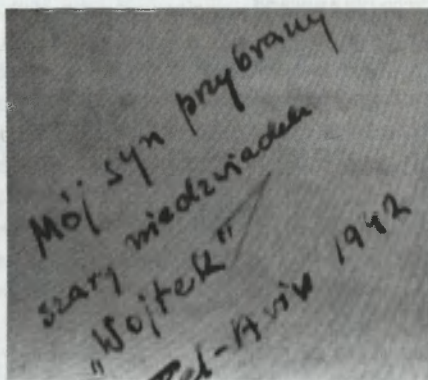 Mój syn przybrany
szary niedzwiadek
„Wojtek"
Tel-Aviv 1942